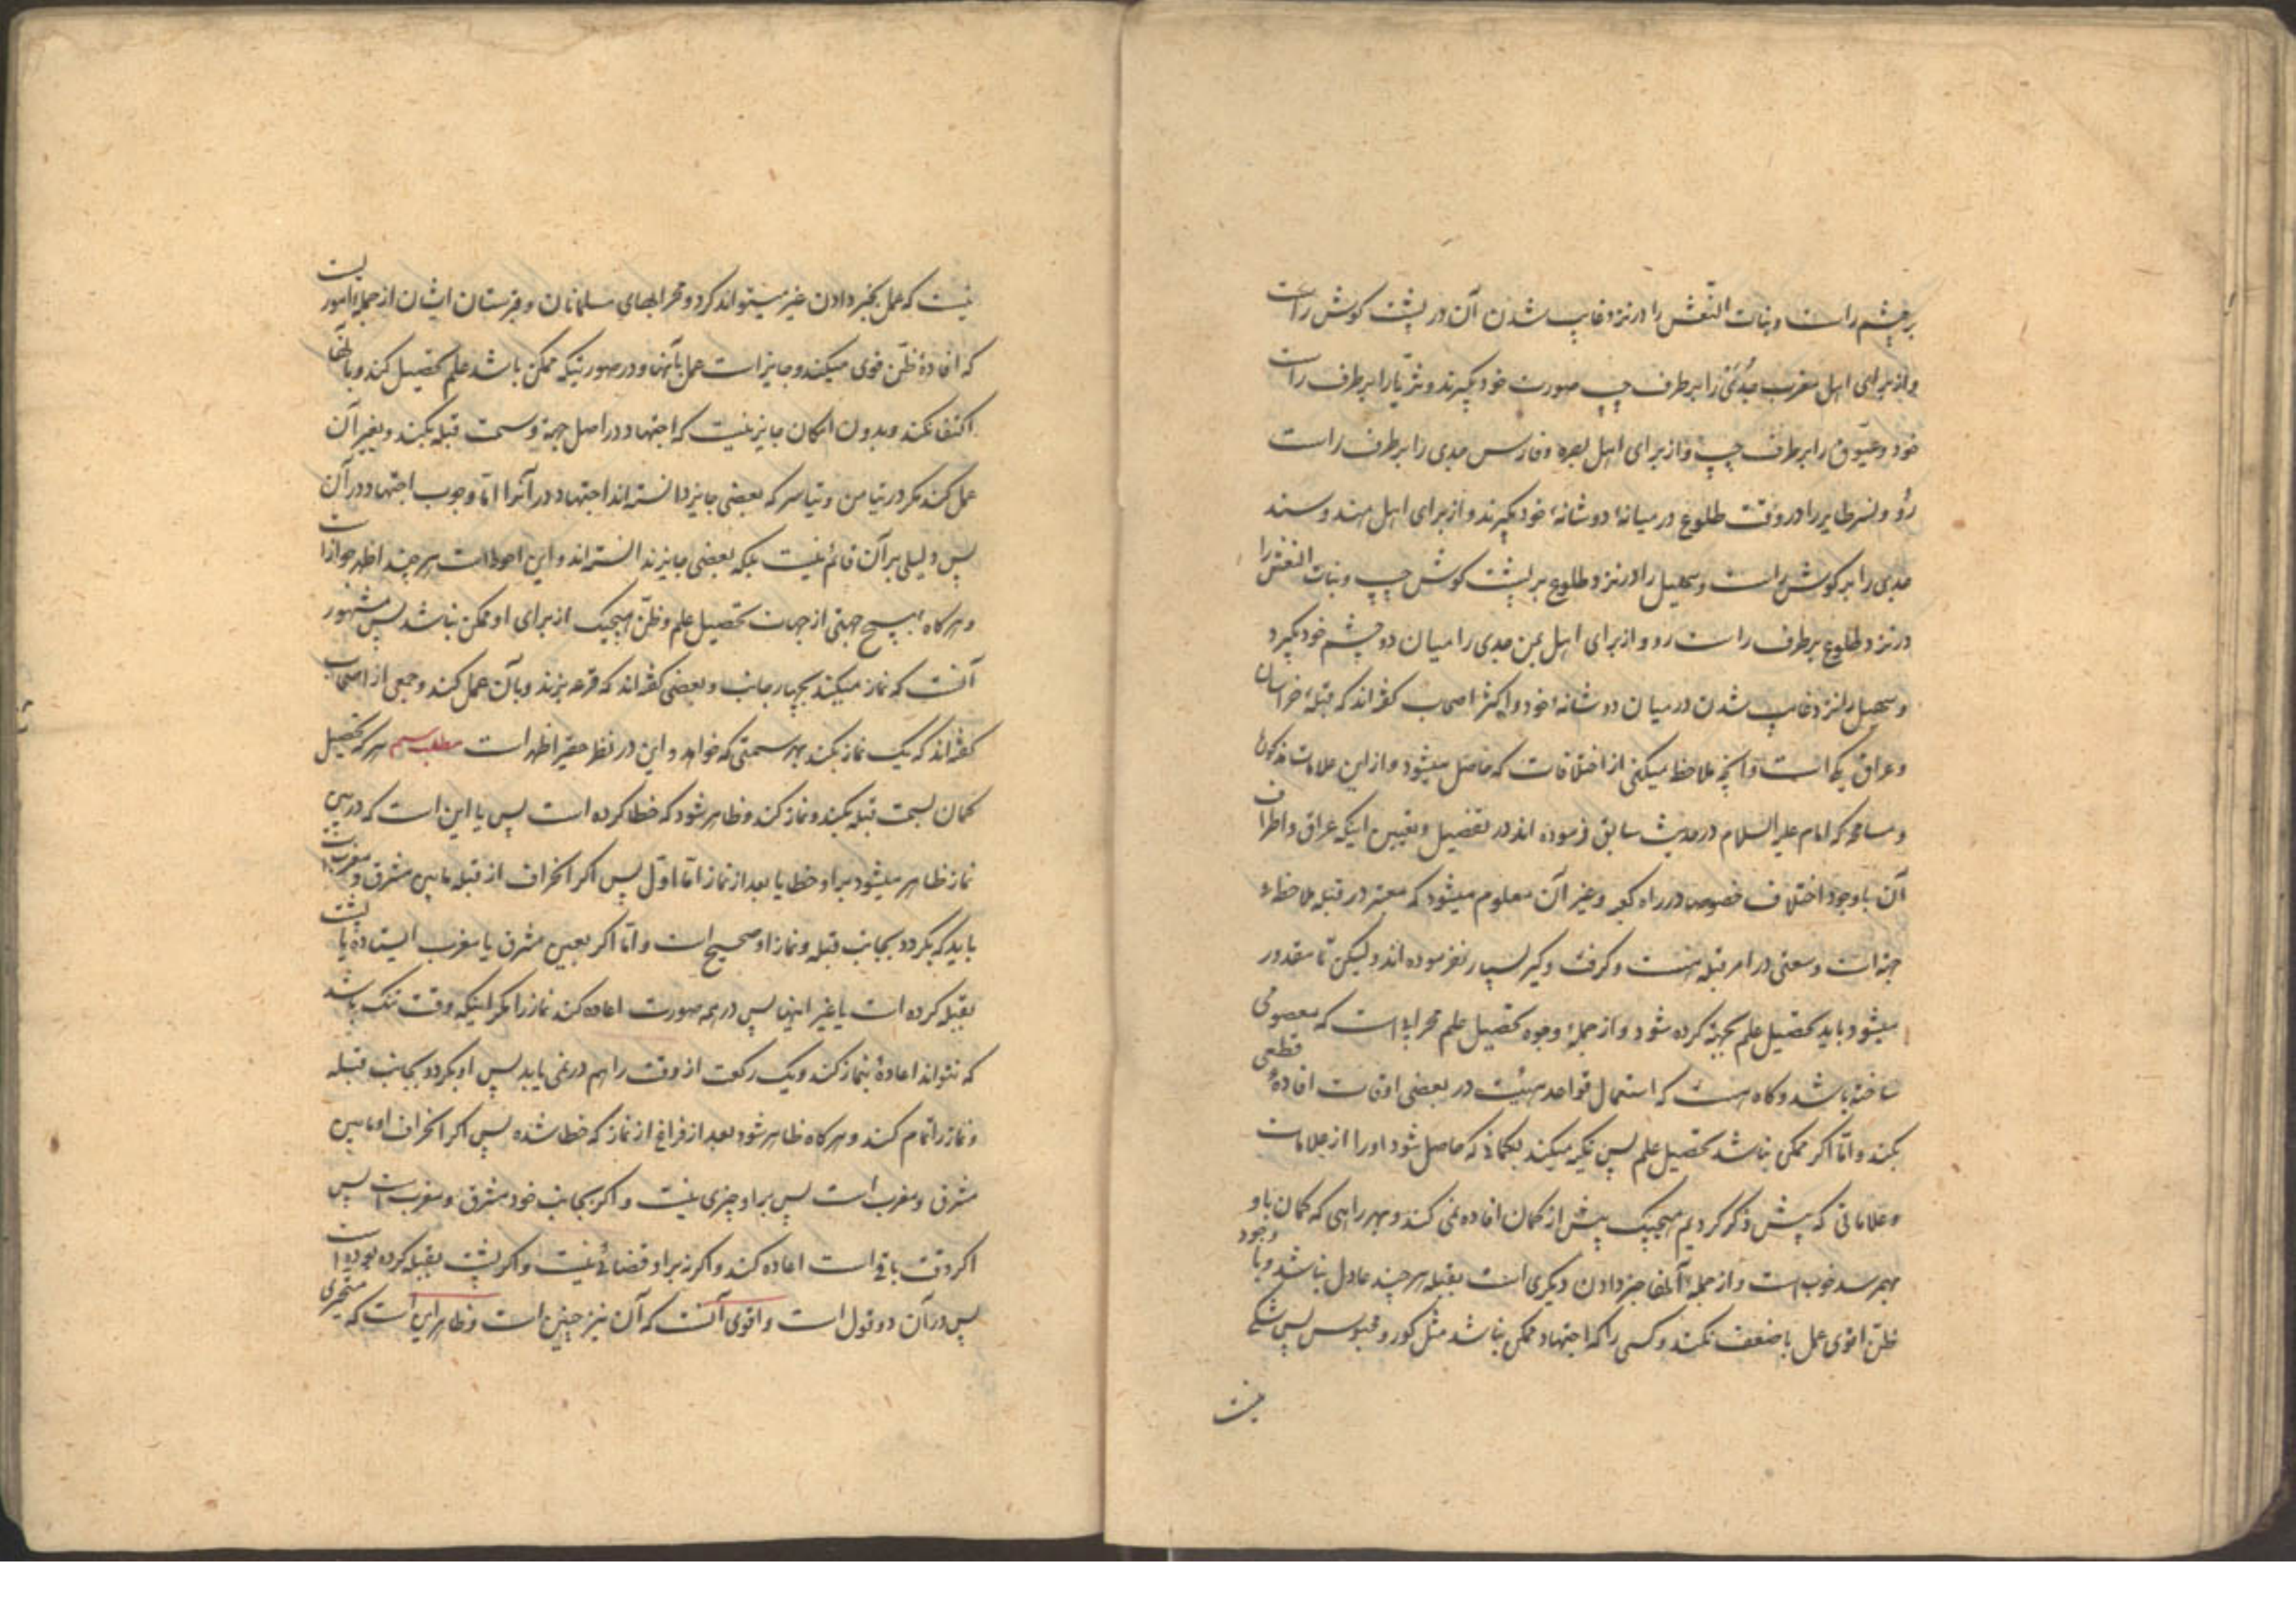 بر چشم راست و بنات النّعش را در نزد غایب شدن آن در پشت کوش راست
و از برای اهل مغرب جُدَیّ را بر طرف چپ صورت خود بکیرند و ثریّا را بر طرف راست
خود و عیّوق را بر طرف چپ و از برای اهل بصره و فارس جدی را بر طرف راست
رو و نسر طایر را در وقت طلوع در میانهٔ دو شانهٔ خود بکیرند و از برای اهل هند و سند
جدی را بر کوش راست و سهیل را در نزد طلوع بر پشت کوش چپ و بنات النعش را
در نزد طلوع بر طرف راست رو و از برای اهل یمن جدی را میان دو چشم خود بکیرد
و سهیل را نزد غایب شدن در میان دو شانهٔ خود و اکثر اصحاب کفته‌اند که قبلهٔ خراسان
و عراق یکی است و آنچه ملاحظه میکنی از اختلافات که حاصل میشود و از این علامات مذکوره
و مسامحه که امام علیه السلام در حدیث سابق فرموده اند در تفصیل و تعیین اینکه عراق و اطراف
آن با وجود اختلاف خصوص در راه کعبه و غیر آن معلوم میشود که معتبر در قبله ملاحظهٔ
جهة است و سعتی در امر قبله هست و کرفت و کیر بسیار نفرموده اند و لیکن تا مقدور
میشود باید تحصیل علم بجهة کرده شود و از جملهٔ وجوه تحصیل علم محرابی است که معصومی
ساخته باشد و کاه هست که استعمال قواعد هیئت در بعضی اوقات افادهٔ قطعی
بکند و امّا اکر ممکن نباشد تحصیل علم پس تکیه میکند بکمانی که حاصل شود او را از علامات
و علاماتی که پیش ذکر کردیم هیچیک بیش از کمان افاده نمی کند و بهر راهی که کمان باو
بهم رسد خوب است و از جملهٔ آنها خبر دادن دیکری است بقبله هر چند عادل نباشد و با وجود
ظنّ اقوی عمل باضعف نکند و کسی را که اجتهاد ممکن نباشد مثل کور و محبوس پس شکی
نیست
نیست که عمل بخبر دادن غیر میتواند کرد و محرابهای مسلمانان و قبرستان ایشان از جملهٔ امور یست
که افادهٔ ظنّ قوی میکند و جایز است عمل بآنها و در صورتیکه ممکن باشد علم تحصیل کند و بآنها
اکتفا نکند و بدون امکان جایز نیست که اجتهاد در اصل جهة و سمت قبله بکند و بغیر آن
عمل کند مکر در تیامن و تیاسر که بعضی جایز دانسته اند اجتهاد در آنرا امّا وجوب اجتهاد در آن
پس دلیلی بر آن قائم نیست بلکه بعضی جایز ندانسته اند و این احوط است هر چند اظهر جواز است
و هر کاه هیچ جهتی از جهات تحصیل علم و ظنّ هیچیک از برای او ممکن نباشد پس مشهور
آنست که نماز میکند بچهار جانب و بعضی کفته اند که قرعه بزند و بآن عمل کند و جمعی از اصحاب
کفته‌اند که یک نماز بکند بهر سمتی که خواهد و این در نظر حقیر اظهر است مطلب سیم هر که تحصیل
کمان بسمت قبله بکند و نماز کند و ظاهر شود که خطا کرده است پس یا این است که در بین
نماز ظاهر میشود بر او خطا یا بعد از نماز امّا اوّل پس اکر انحراف از قبله مابین مشرق و مغرب است
باید که بکردد بجانب قبله و نماز او صحیح است و امّا اکر بعین مشرق یا مغرب ایستاده یا پشت
بقبله کرده است یا غیر اینها پس در همه صورت اعاده کند نماز را مکر اینکه وقت تنک باشد
که نتواند اعادهٔ نماز کند و یک رکعت از وقت را هم در نمی یابد پس او بکردد بجانب قبله
و نماز را تمام کند و هر کاه ظاهر شود بعد از فراغ از نماز که خطا شده پس اکر انحراف او مابین
مشرق و مغرب است پس بر او چیزی نیست و اکر بجانب خود مشرق و مغرب است پس
اکر وقت باقی است اعاده کند و اکر نه بر او قضائی نیست و اکر پشت بقبله کرده بوده است
پس در آن دو قول است و اقوی آنست که آن نیز چنین است و ظاهر این است که متحیری